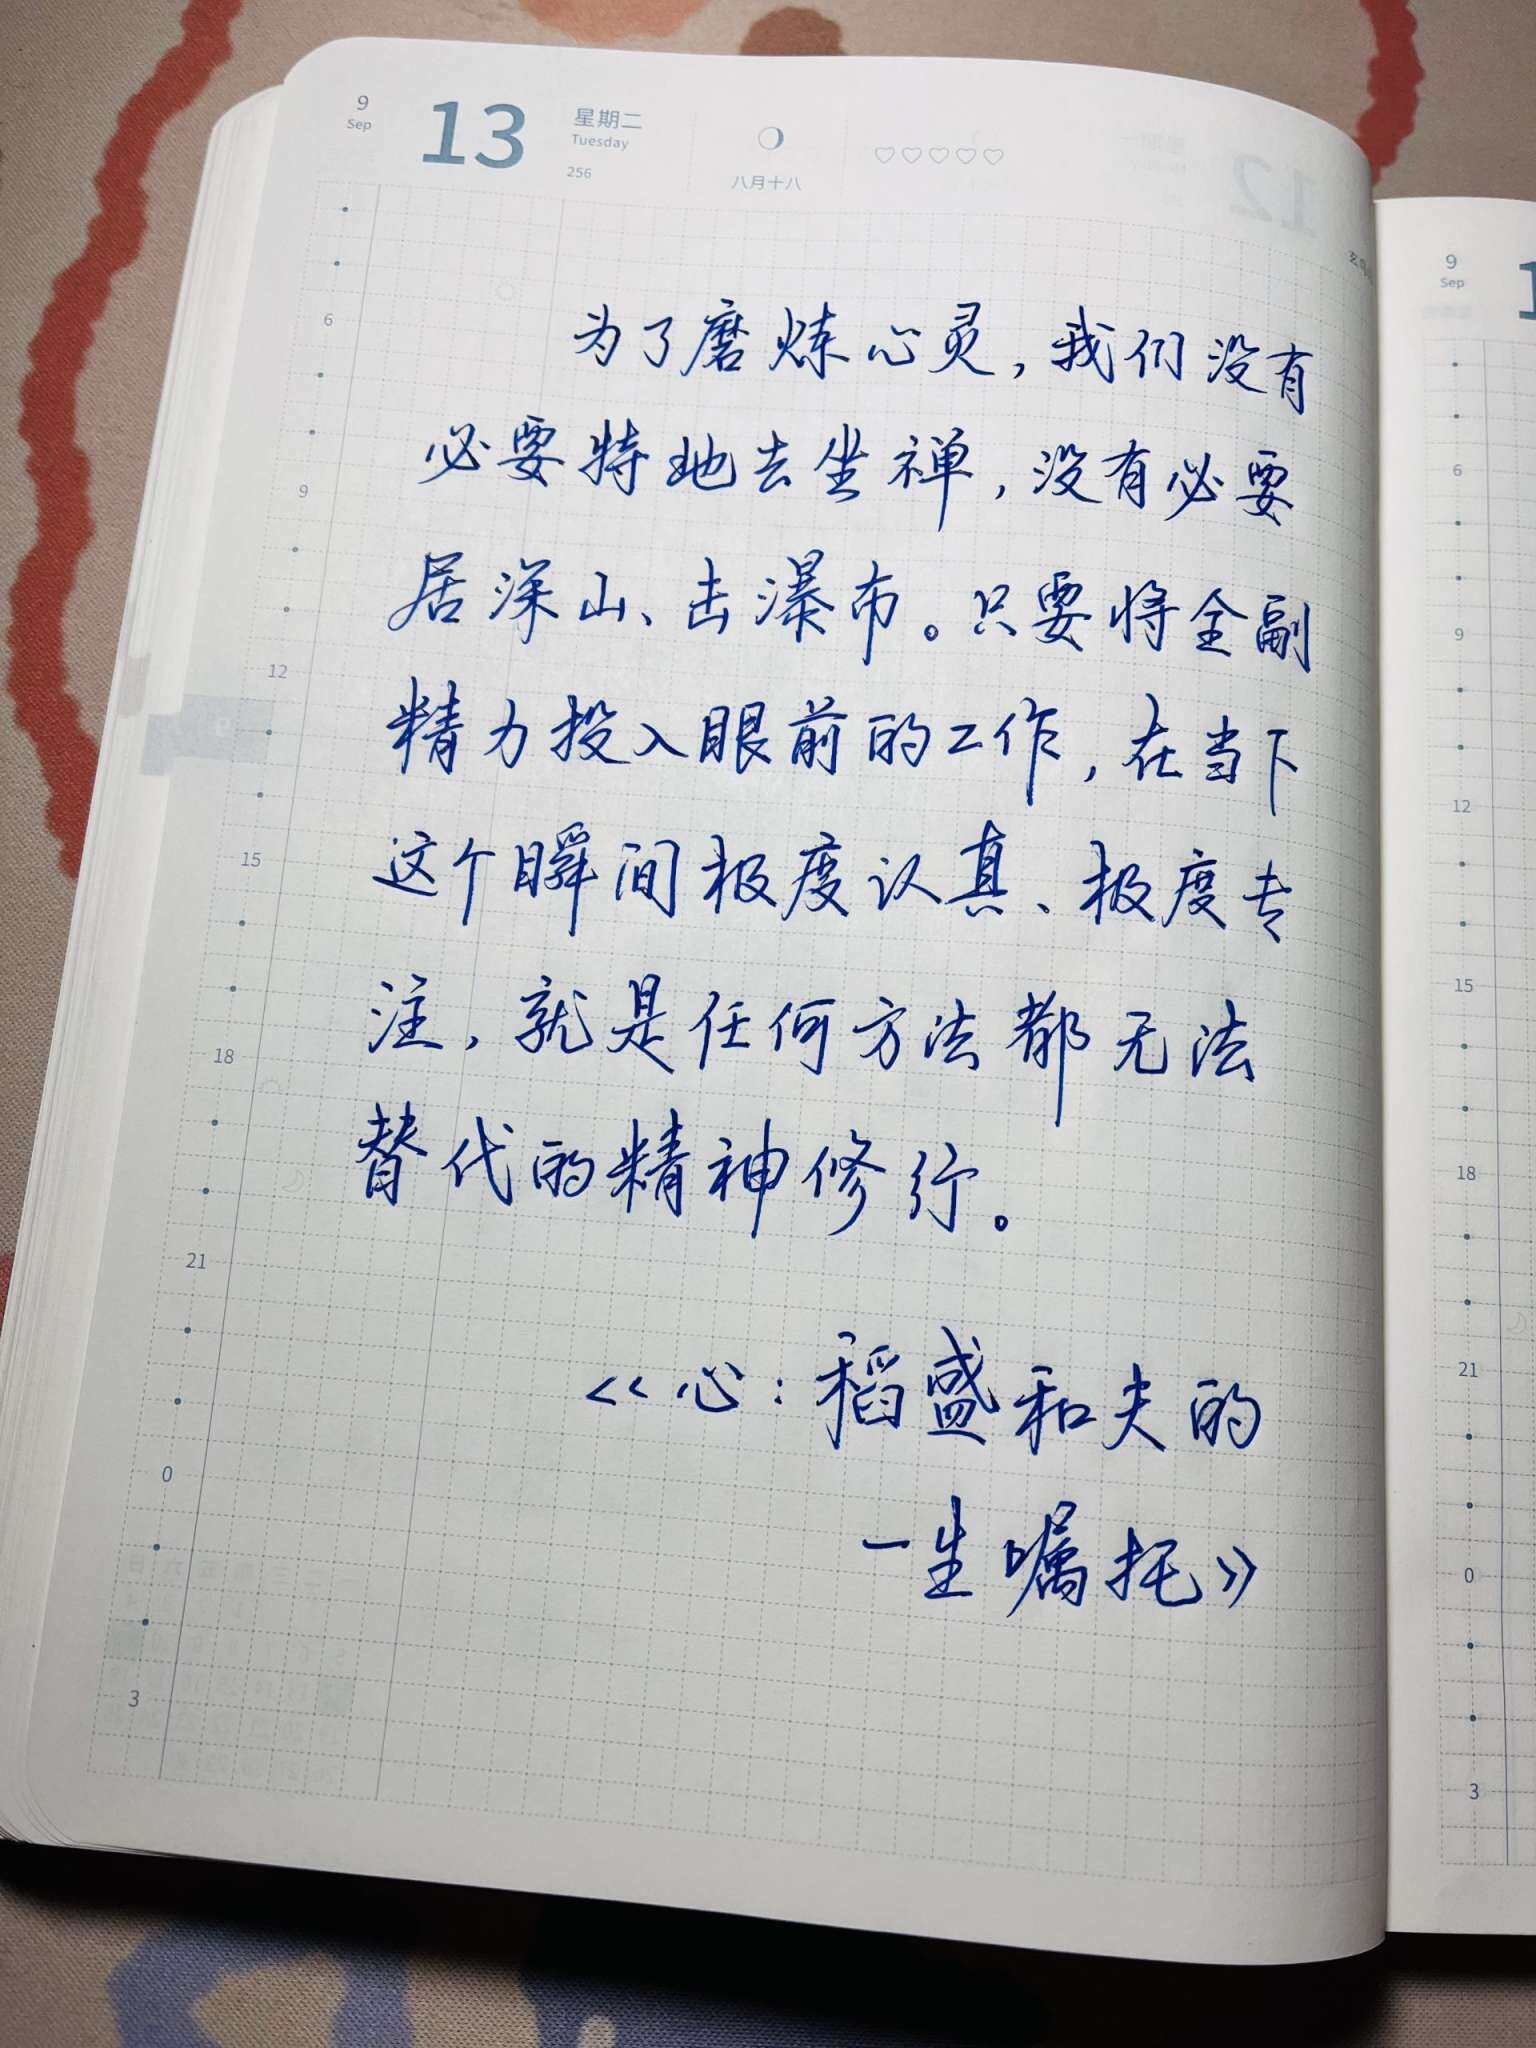 9
Sep
13
星期二
Tuesday
256
八月十八
为了磨炼心灵，我们没有
必要特地去坐禅，没有必要
居深山、击瀑布。只要将全副
精力投入眼前的工作，在当下
这个瞬间极度认真、极度专
注，就是任何方法都无法
替代的精神修行。
《心：稻盛和夫的
一生嘱托》
6
9
12
15
18
21
0
3
9
Sep
1
6
9
12
15
18
21
0
3